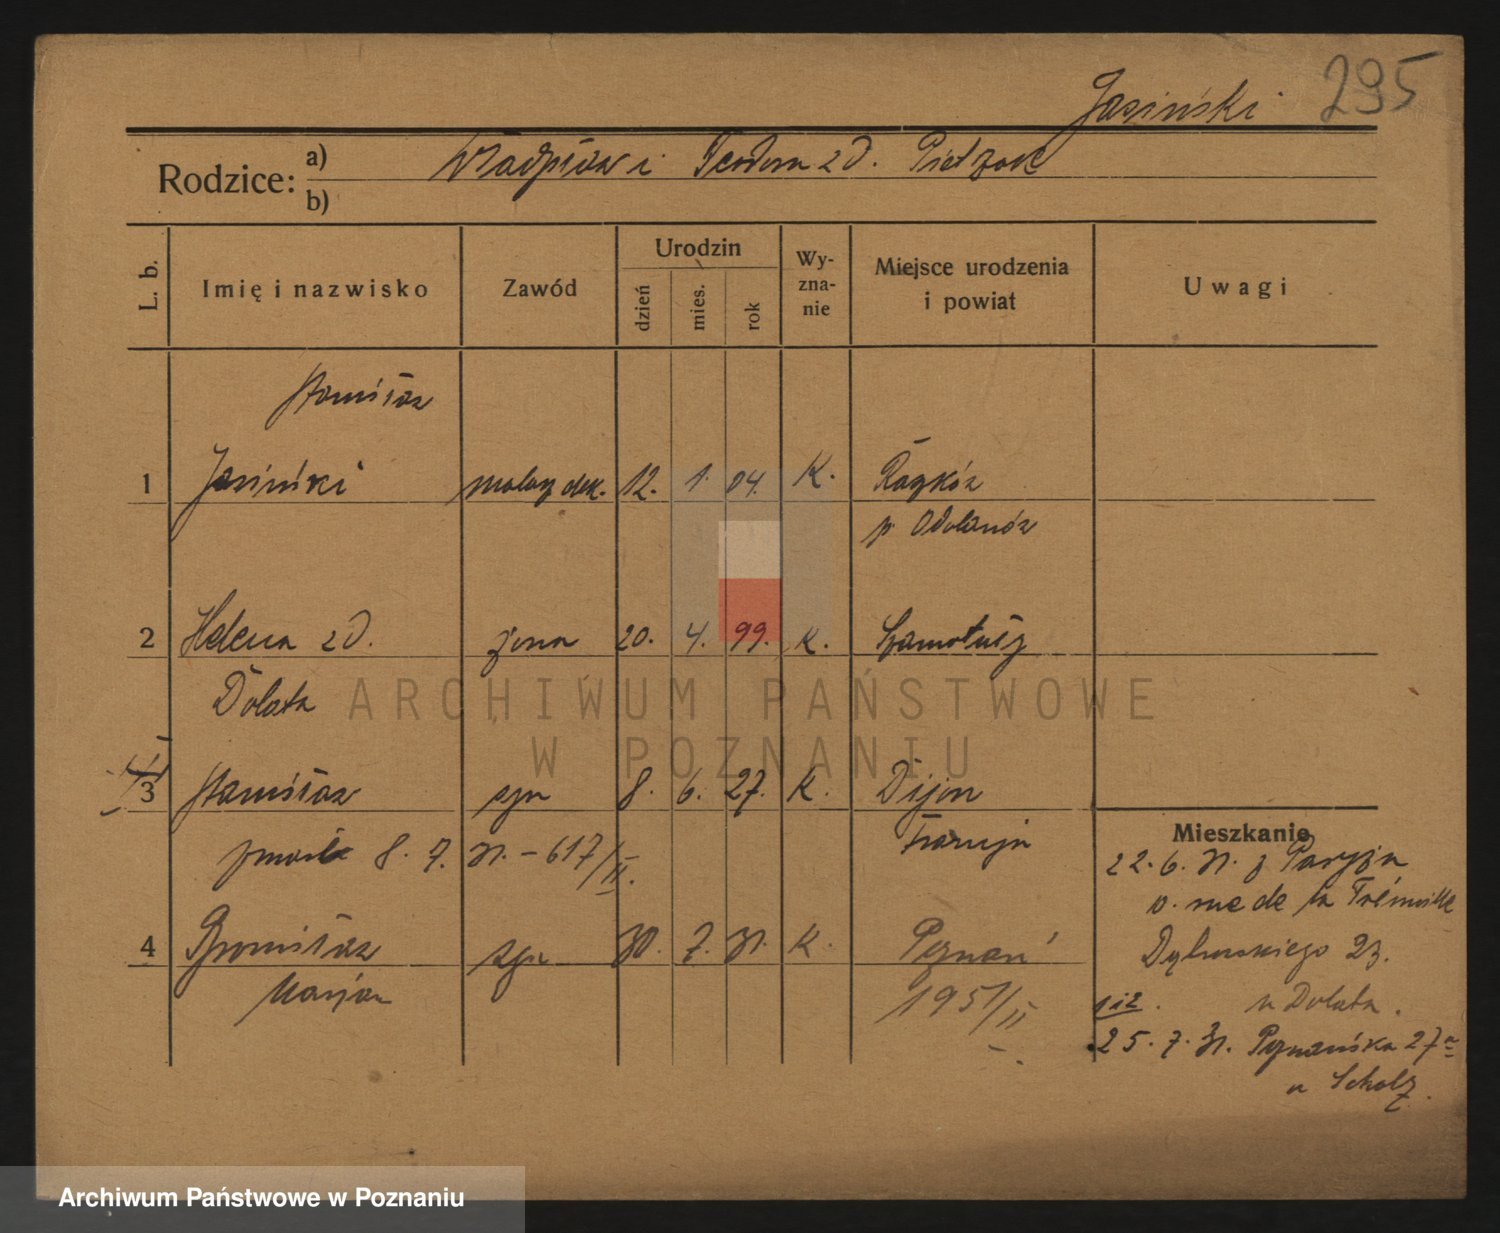 295
Jasiński
Rodzice: a) Władysław i Teodora z d. Pietrzak
b)
L. b. Imię i nazwisko Zawód Urodzin dzień mies. rok Wyznanie Miejsce urodzenia i powiat Uwagi
Stanisław
1 Jasiński malarz dek. 12. 1. 04. K. Raszków
p. Odolanów
2 Helena z d. żona 20. 4. 99. K. Szamotuły
Dolata
3 Stanisław syn 8. 6. 27. K. Dijon
zmarł 8. 7. 31. – 617/II. Francja
4 Bronisław syn 30. 7. 31. K. Poznań
Marjan 1951/II
Mieszkanie
22. 6. 31. z Paryża
rue de la
23.
u Dolata.
25. 7. 31. Poznańska 27a
u Scholz.
ARCHIWUM PAŃSTWOWE
W POZNANIU
Archiwum Państwowe w Poznaniu